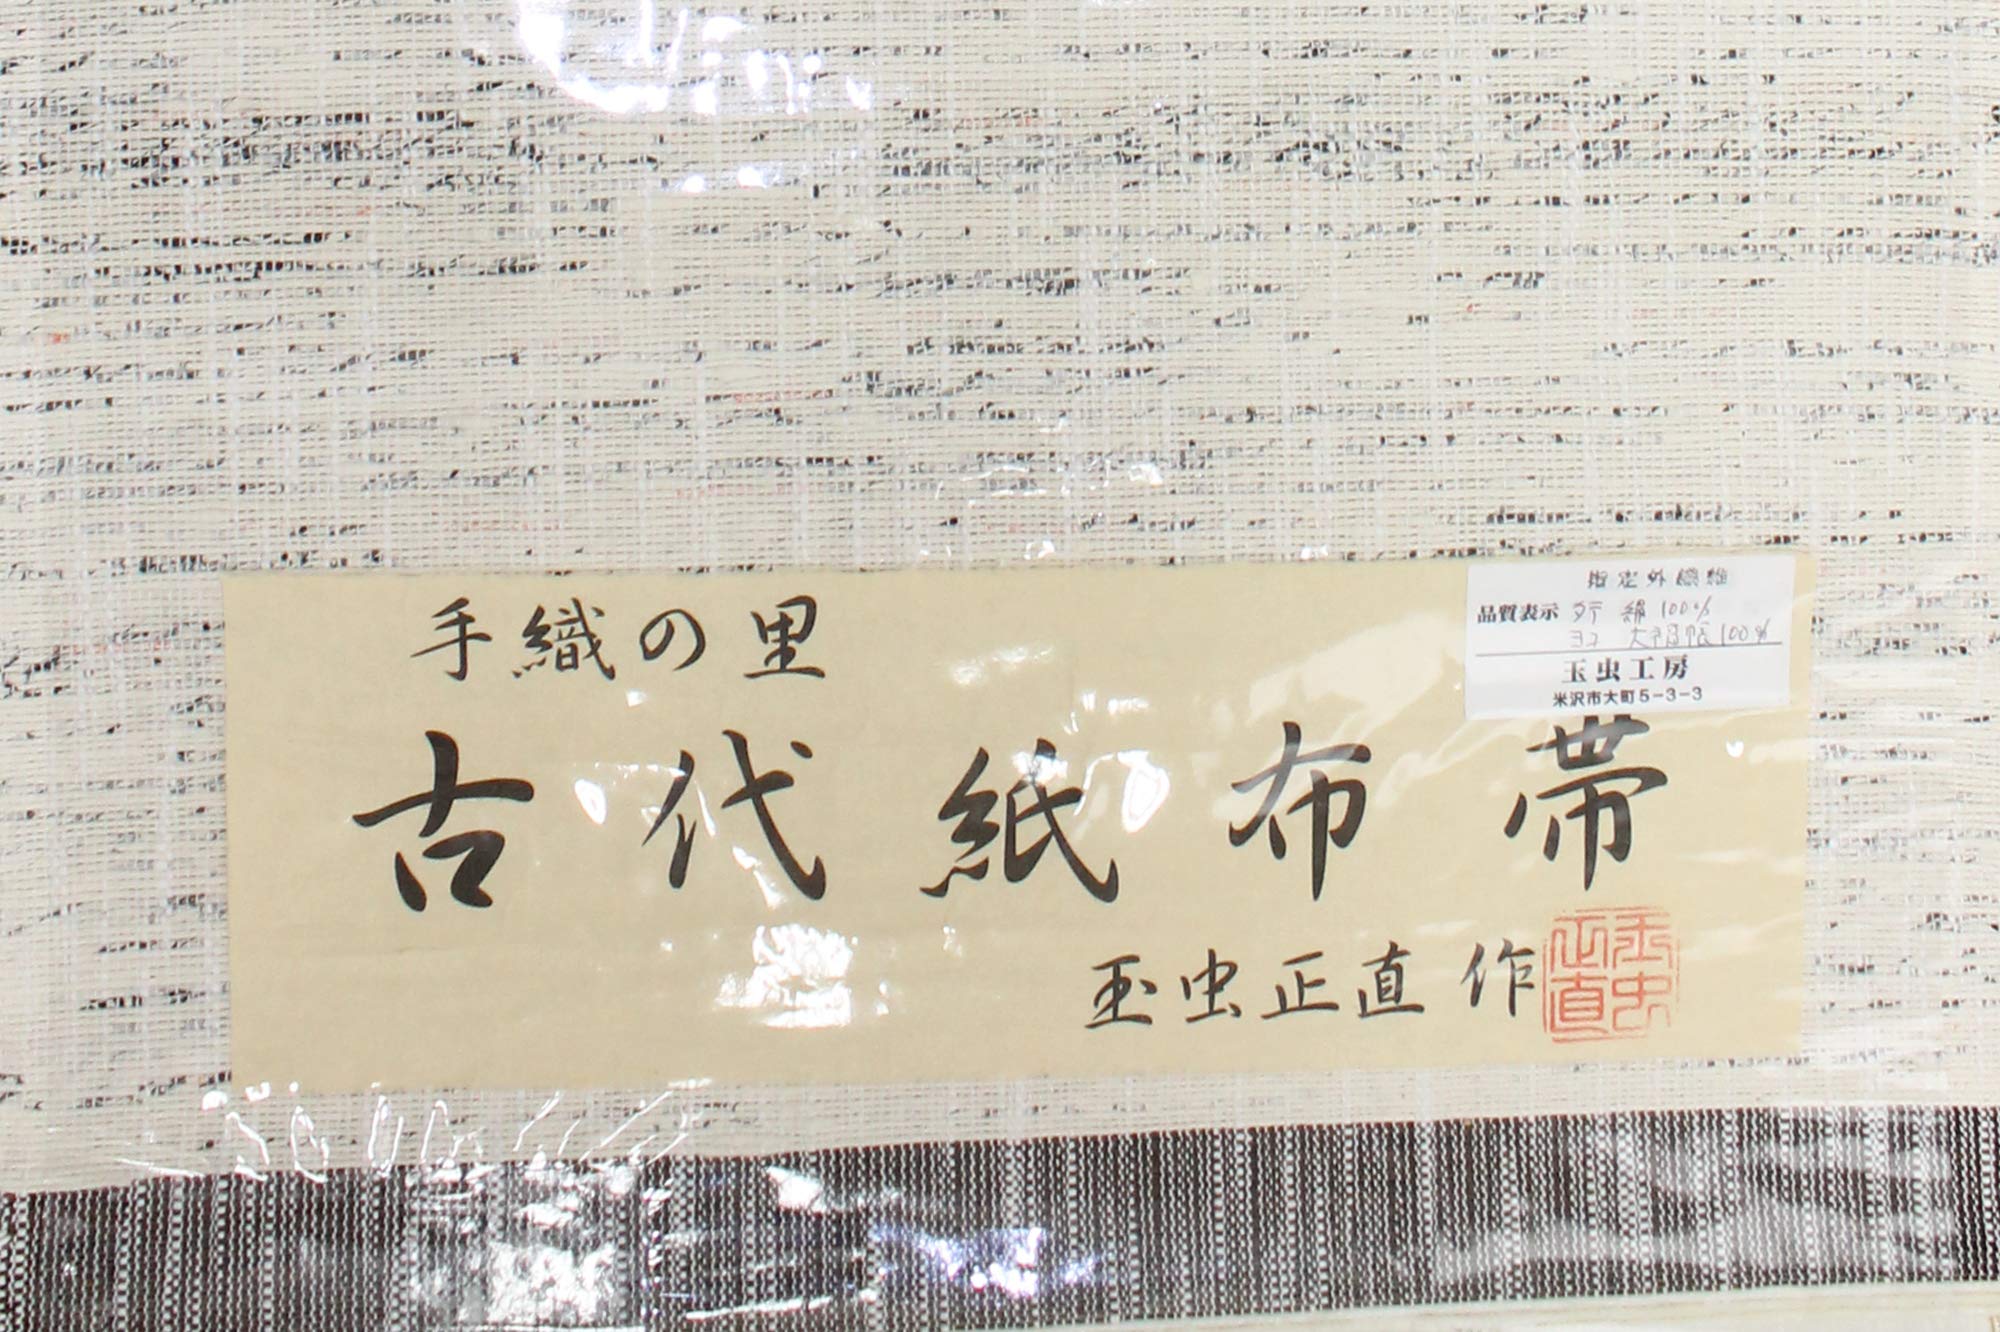 手織の里
古代紙布帯
玉虫正直 作
玉虫正直
指定外繊維
品質表示 タテ 絹100%
ヨコ 大福帳100%
玉虫工房
米沢市大町5-3-3